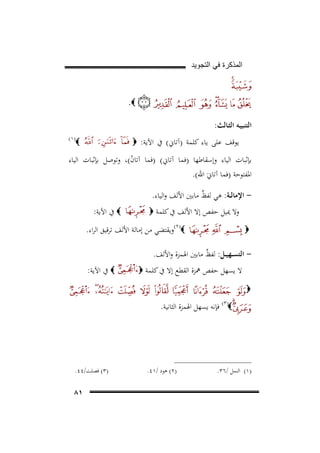 المذكرة في التجويد
وَشَيْبَةً
يَخْلُقُ مَا يَشَاءُ وَهُوَ الْعَلِيمُ الْقَدِيرُ ﴿٥٤﴾.
التنبيه الثالث:
يوقف على ياء كلمة (آتاني) في الآية: ﴿ فَمَا ءَاتَىٰنِۦَ ٱللَّهُ ﴾(١)
بإثبات الياء وإسقاطها (فما آتاني) (فما آتانْ)، وتوصل بإثبات الياء
المفتوحة (فما آتانيَ الله).
– الإمالة: هي لفظٌ مابين الألف والياء.
ولا يميل حفص إلا الألف في كلمة ﴿ مَجْرٜىٰهَا ﴾ في الآية:
﴿ بِسْمِ ٱللَّهِ مَجْرٜىٰهَا ﴾(٢) ويقتضي من إمالة الألف ترقيق الراء.
– التسهيل: لفظٌ مابين الهمزة والألف.
لا يسهل حفص همزة القطع إلا في كلمة ﴿ ءَا۬عْجَمِىٌّ ﴾ في الآية:
﴿ وَلَوْ جَعَلْنَٰهُ قُرْءَانًا أَعْجَمِيًّا لَّقَالُوا۟ لَوْلَا فُصِّلَتْ ءَايَٰتُهُۥٓ ءَا۬عْجَمِىٌّ
وَعَرَبِىٌّ ﴾(٣) فإنه يسهل الهمزة الثانية.
(١) النمل /٣٦. (٢) هود /٤١. (٣) فصلت/٤٤.
٨١